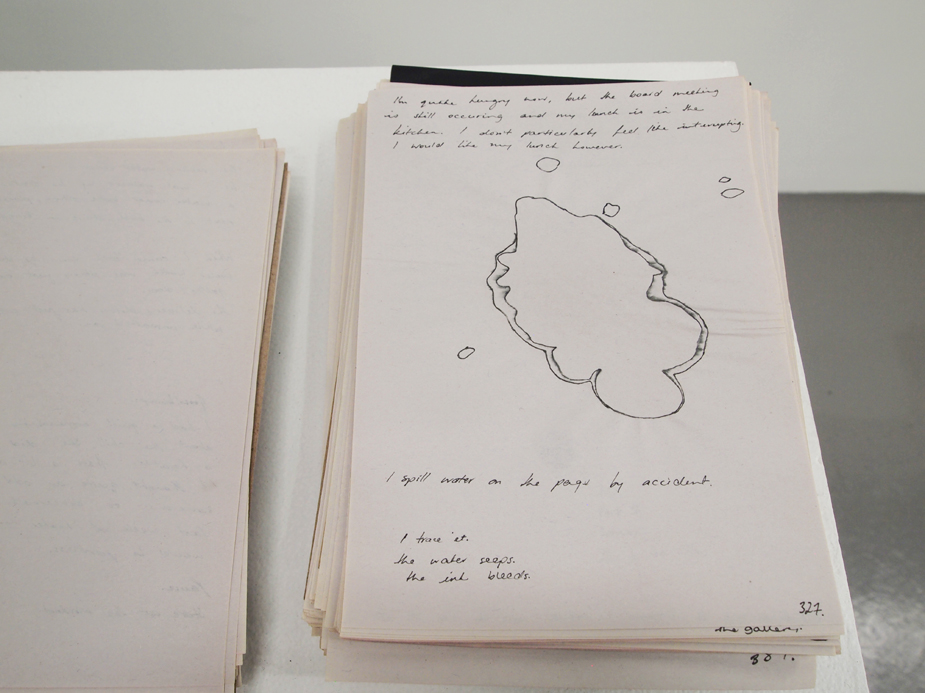 I'm quite hungry now, but the board meeting
is still occuring and my lunch is in the
kitchen. I don't particularly feel like interrupting.
I would like my lunch however.
I spill water on the page by accident.
I trace it.
the water seeps.
the ink bleeds.
327.
the gallery.